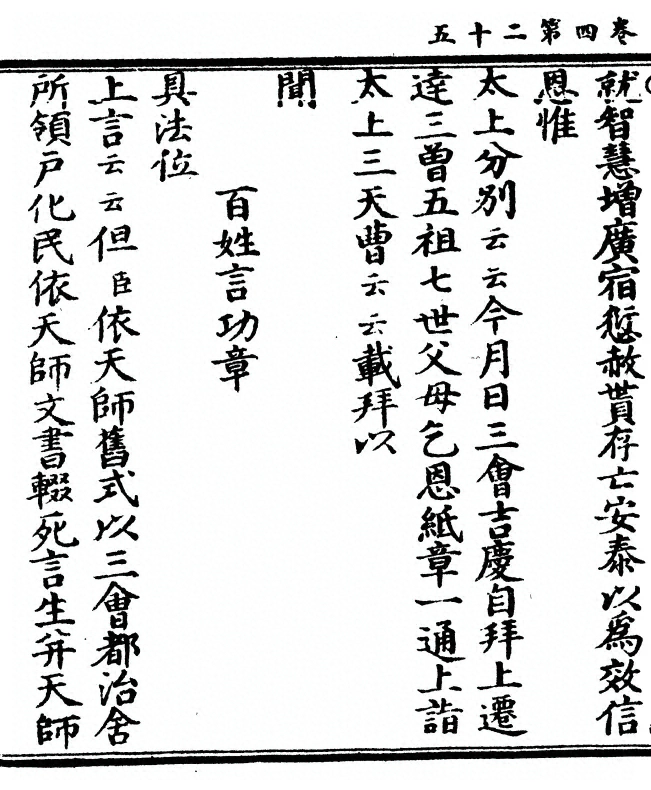 卷四第二十五
就智慧增廣宿愆赦貰存亡安泰以爲效信
恩惟
太上分别云云今月日三會吉慶自拜上遷
達三曾五祖七世父母乞恩紙章一通上詣
太上三天曹云云載拜以
聞
百姓言功章
具法位
上言云云但臣依天師舊式以三會都治舍
所領户化民依天師文書輟死言生并天師